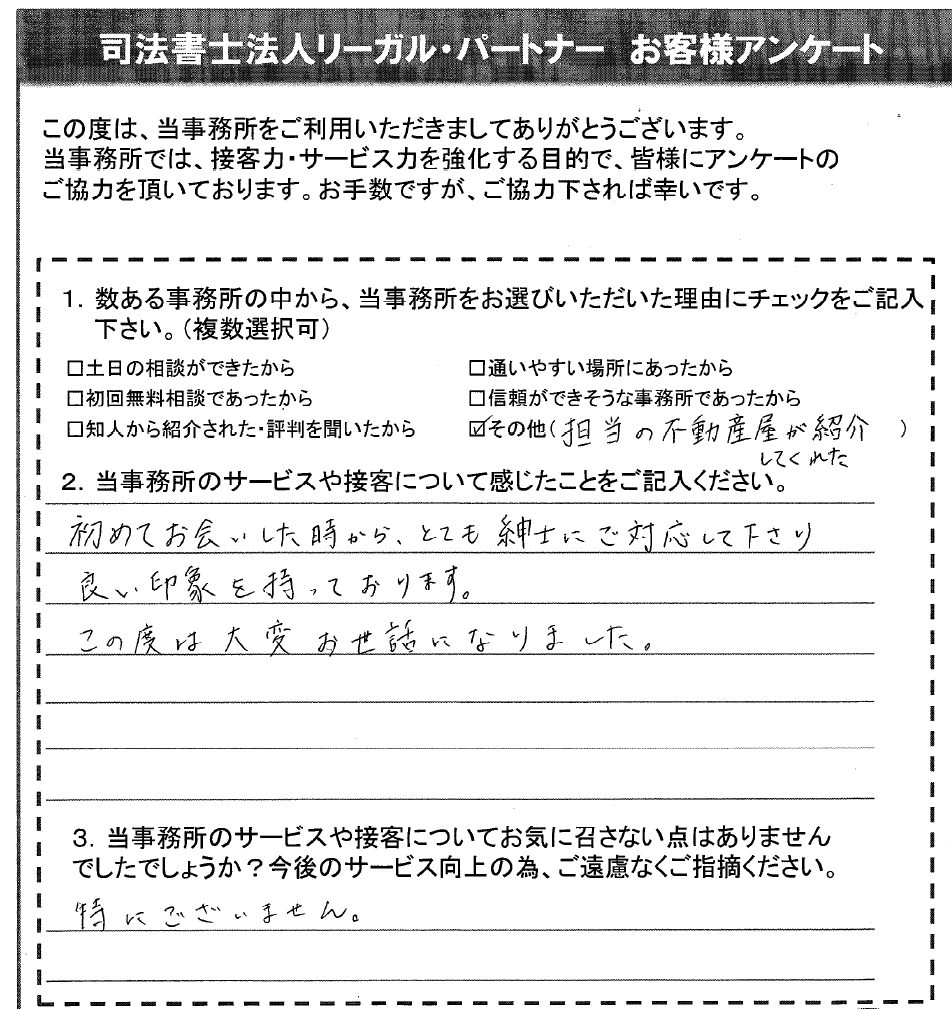 司法書士法人リーガル・パートナー お客様アンケート
この度は、当事務所をご利用いただきましてありがとうございます。
当事務所では、接客力・サービス力を強化する目的で、皆様にアンケートの
ご協力を頂いております。お手数ですが、ご協力下されば幸いです。
1. 数ある事務所の中から、当事務所をお選びいただいた理由にチェックをご記入
下さい。(複数選択可)
□土日の相談ができたから □通いやすい場所にあったから
□初回無料相談であったから □信頼ができそうな事務所であったから
□知人から紹介された・評判を聞いたから ☑その他(担当の不動産屋が紹介 )
してくれた
2. 当事務所のサービスや接客について感じたことをご記入ください。
初めてお会いした時から、とても紳士にご対応して下さり
良い印象を持っております。
この度は大変お世話になりました。
3. 当事務所のサービスや接客についてお気に召さない点はありません
でしたでしょうか?今後のサービス向上の為、ご遠慮なくご指摘ください。
特にございません。